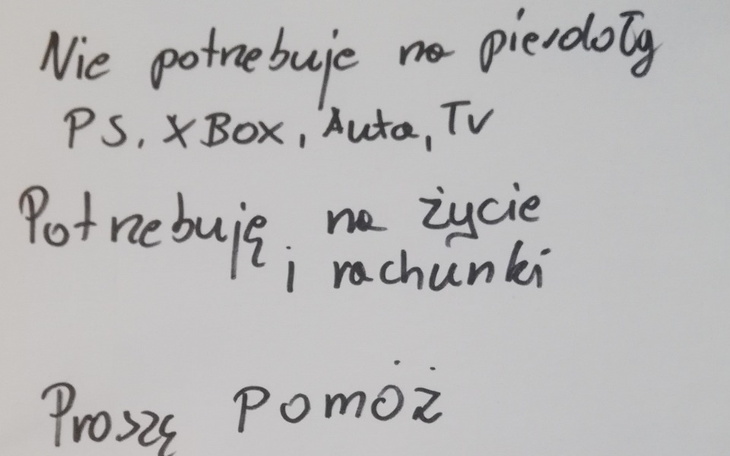 Nie potrzebuje na pierdoły
PS, XBox, Auta, TV
Potrzebuję na życie
i rachunki
Proszę POMÓŻ